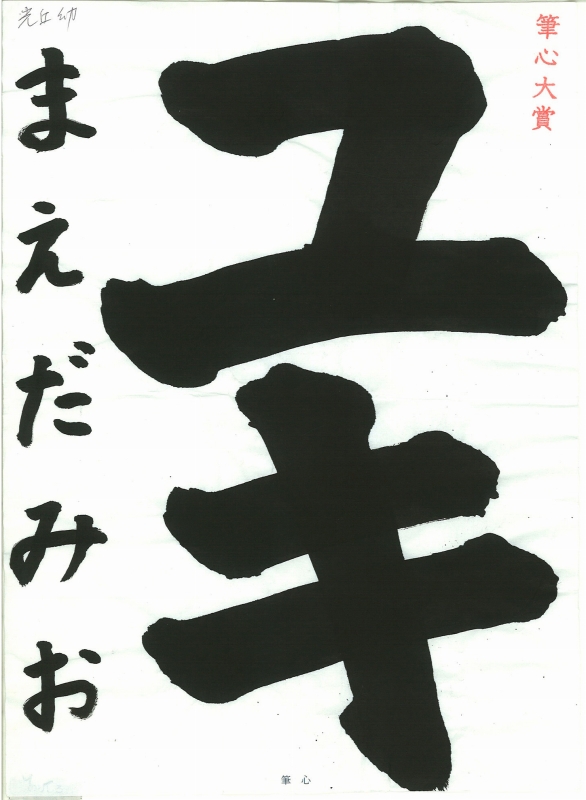 筆心大賞
ユキ
光丘幼
まえだみお
筆心